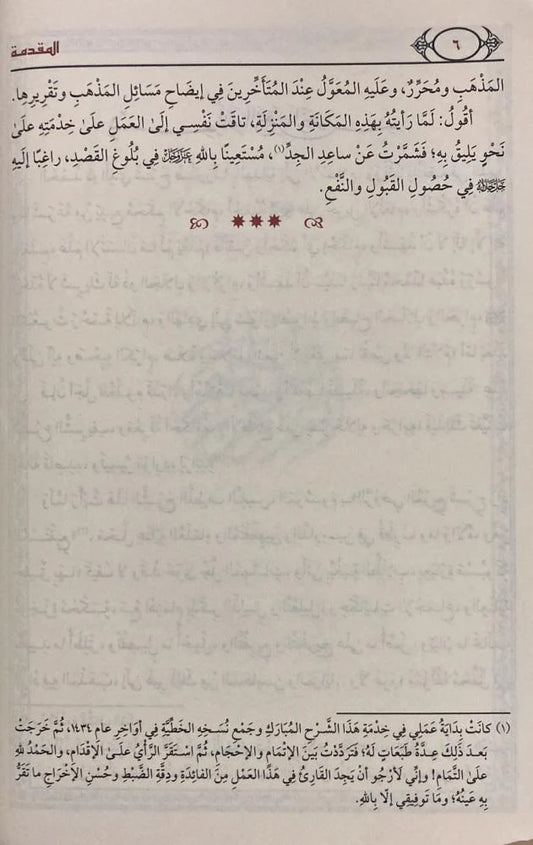 ٦
المقدمة
المَذْهَبِ ومُحَرِّرُ، وعَلَيهِ المُعَوَّلُ عِنْدَ المُتَأَخِّرِينَ فِي إيضَاحِ مَسَائِلِ المَذْهَبِ وتَقْرِيرِها.
أقُولُ: لَمَّا رَأيْتُهُ بِهَذِهِ المَكَانَةِ والمَنْزِلَةِ، تاقَتْ نَفْسِي إلَىٰ العَمَلِ عَلَىٰ خِدْمَتِهِ عَلَىٰ
نَحْوٍ يَلِيقُ بِهِ؛ فشَمَّرْتُ عَنْ ساعِدِ الجِدِّ(١)، مُسْتَعِينًا بِاللهِ عَزَّوَجَلَّ فِي بُلُوغِ القَصْدِ، راغِبًا إلَيهِ
جَلَّ جَلَالُهُ فِي حُصُولِ القَبُولِ والنَّفْعِ.
(١) كانَتْ بِدَايَةُ عَمَلِي فِي خِدْمَةِ هَذَا الشَّرْحِ المُبَارَكِ وجَمْعِ نُسَخِهِ الخَطِّيَّةِ فِي أوَاخِرِ عام ١٤٣٤، ثُمَّ خَرَجَتْ
بَعدَ ذَلِكَ عِدَّةُ طَبَعَاتٍ لَهُ؛ فتَرَدَّدْتُ بَينَ الإتْمَامِ والإحْجَامِ، ثُمَّ اسْتَقَرَّ الرَّأيُ عَلَىٰ الإقْدَامِ، والحَمْدُ للهِ
عَلَىٰ التَّمَامِ! وإنِّي لَأرْجُو أنْ يَجِدَ القَارِئُ فِي هَذَا العَمَلِ مِنَ الفائِدَةِ ودِقَّةِ الضَّبْطِ وحُسْنِ الإخْرَاجِ ما تَقَرُّ
بِهِ عَينُهُ؛ وما تَوفِيقِي إلَّا بِاللهِ.